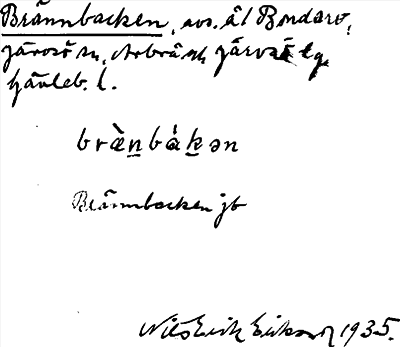 Brännbacken, avs. ål Bondarv,
Järvsö sn, Arbrå och Järvsö tg.
Gävleb. l.
bræ̀n̲bák̲ən
Brännbacken jb
Nils Erik Erikson 1935.